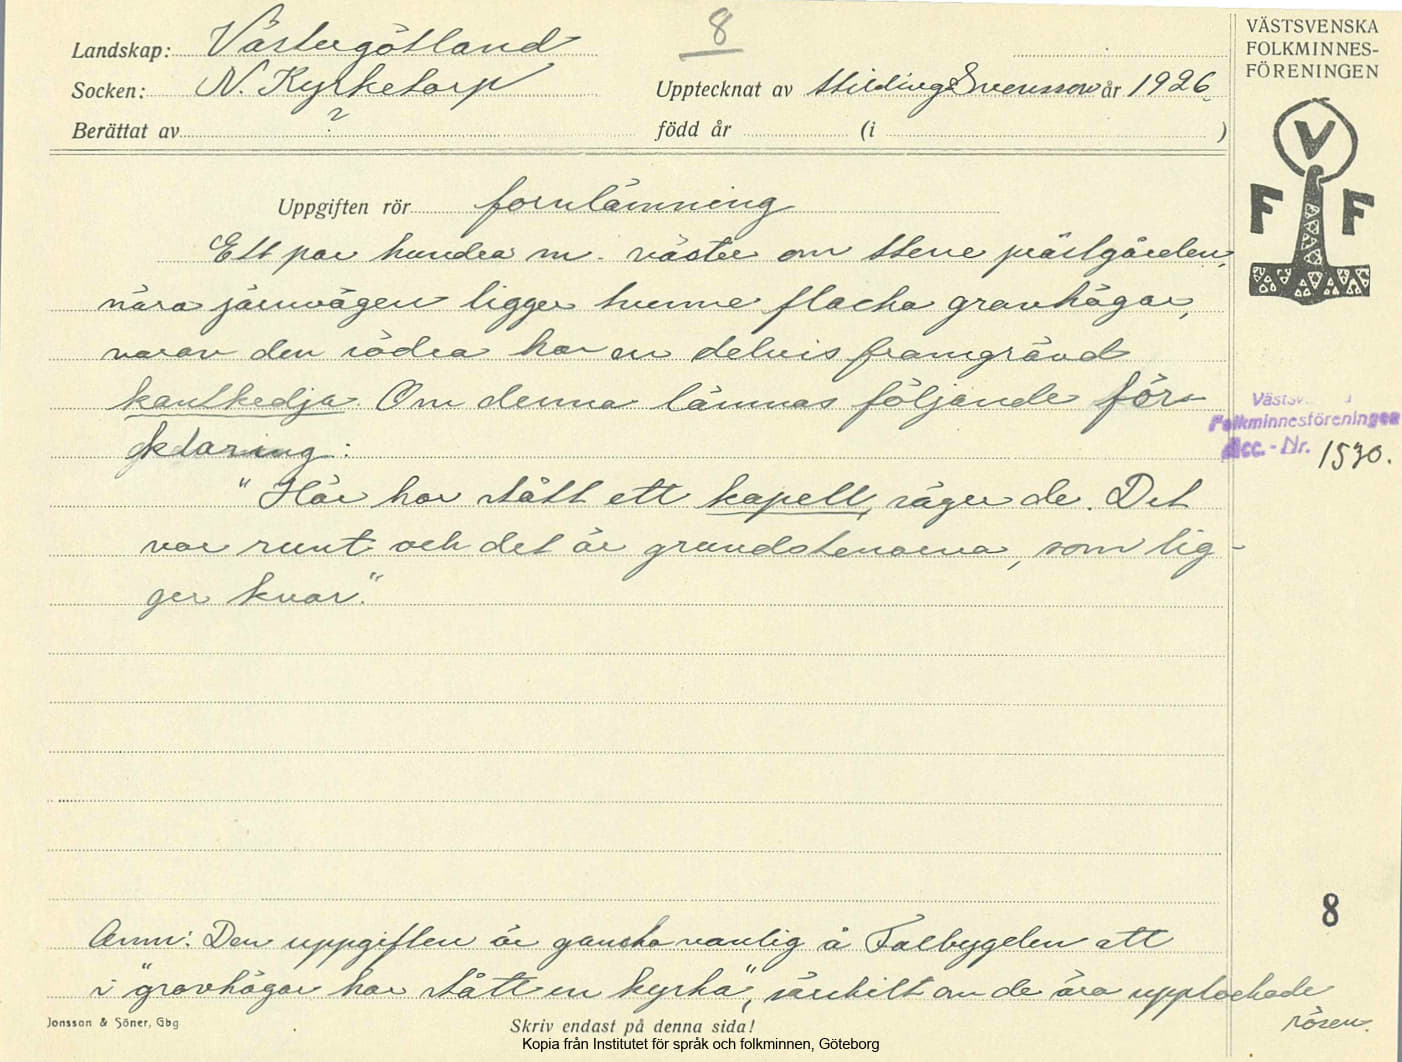 8
Landskap: Västergötland
Socken: N. Kyrketorp
Upptecknat av Hilding Svensson år 1926
Berättat av ?
född år (i )
VÄSTSVENSKA
FOLKMINNES-
FÖRENINGEN
V
F F
Uppgiften rör fornlämning
Ett par hundra m. väster om Stene prästgården,
nära järnvägen ligger tvenne flacka gravhögar,
varav den södra har en delvis framgrävd
kantkedja. Om denna lämnas följande för-
klaring:
"Här har stått ett kapell, säger de. Det
var runt och det är grundstenarna, som lig-
ger kvar."
Folkminnesföreningen
Acc.-Nr. 1530.
8
Anm: Den uppgiften är ganska vanlig å Falbygden att
i "gravhögar har stått en kyrka", särskilt om de äro upplockade
rösen.
Jonsson & Söner, Gbg
Skriv endast på denna sida!
Kopia från Institutet för språk och folkminnen, Göteborg